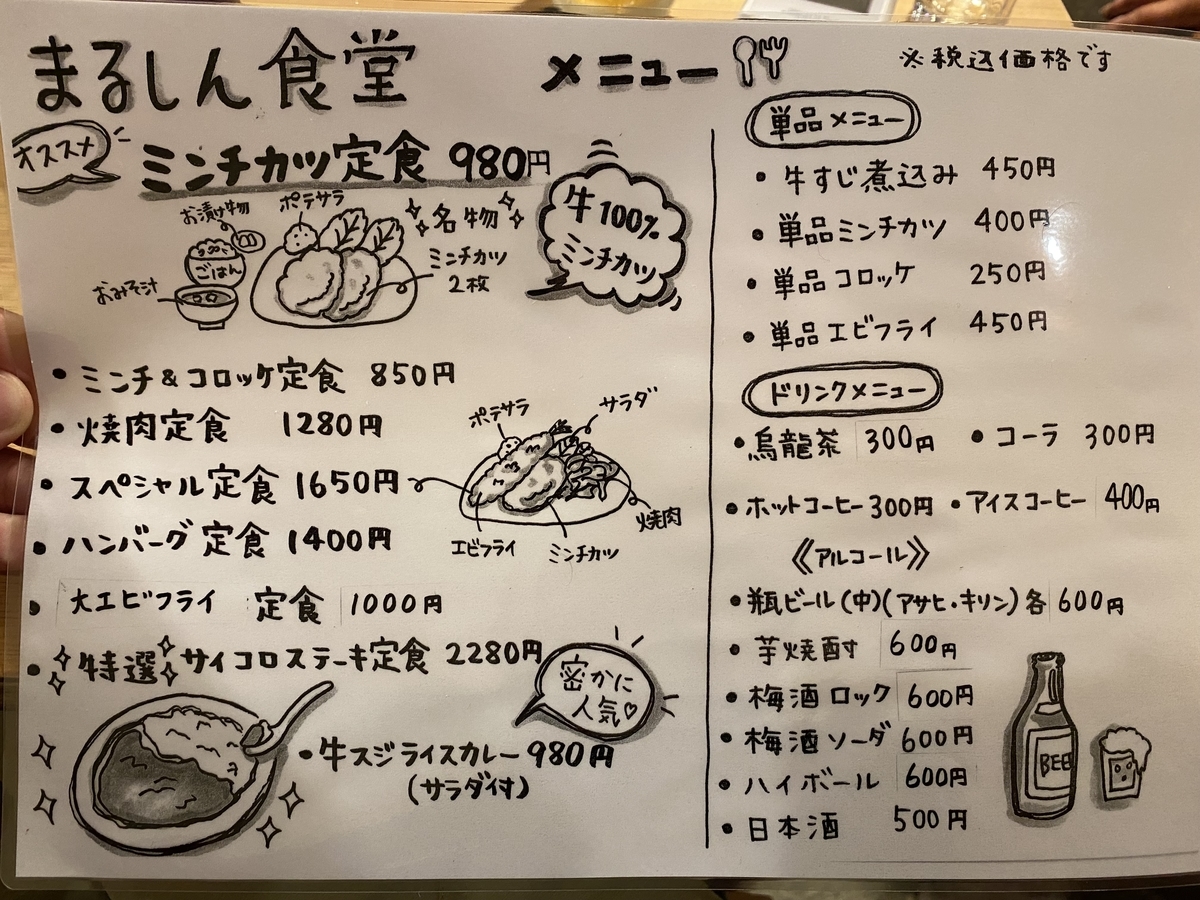 まるしん食堂 メニュー
※税込価格です
オススメ
ミンチカツ定食 980円
牛100%
ミンチカツ
お漬け物
ポテサラ
名物
ごはん
ミンチカツ
2枚
おみそ汁
・ミンチ&コロッケ定食 850円
・焼肉定食 1280円
・スペシャル定食 1650円
ポテサラ
サラダ
エビフライ
ミンチカツ
焼肉
・ハンバーグ定食 1400円
・大エビフライ 定食 1000円
・特選サイコロステーキ定食 2280円
密かに
人気♡
・牛スジライスカレー 980円
(サラダ付)
単品メニュー
・牛すじ煮込み 450円
・単品ミンチカツ 400円
・単品コロッケ 250円
・単品エビフライ 450円
ドリンクメニュー
・烏龍茶 300円 ・コーラ 300円
・ホットコーヒー 300円 ・アイスコーヒー 400円
《アルコール》
・瓶ビール(中)(アサヒ・キリン)各600円
・芋焼酎 600円
・梅酒ロック 600円
・梅酒ソーダ 600円
・ハイボール 600円
・日本酒 500円
BEE